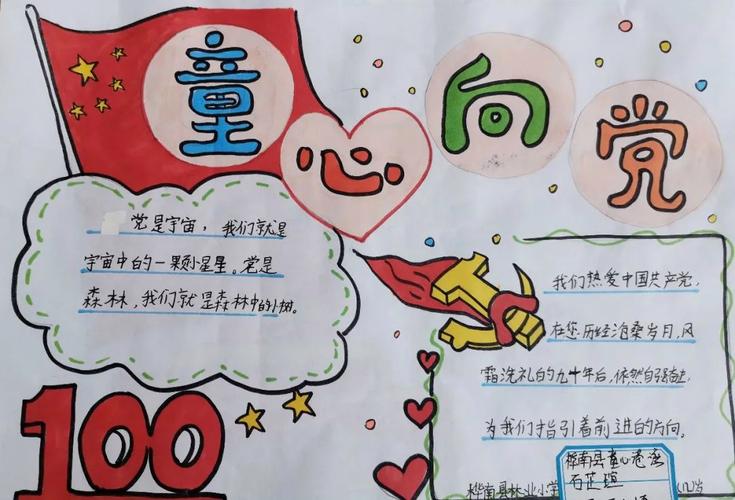 童心向党
党是宇宙，我们就是
宇宙中的一颗小星星。党是
森林，我们就是森林中的小树。
100
我们热爱中国共产党，
在您历经沧桑岁月，风
霜洗礼的九十年后，依然自强奋进，
为我们指引着前进的方向。
桦南县林业小学
桦南县童心